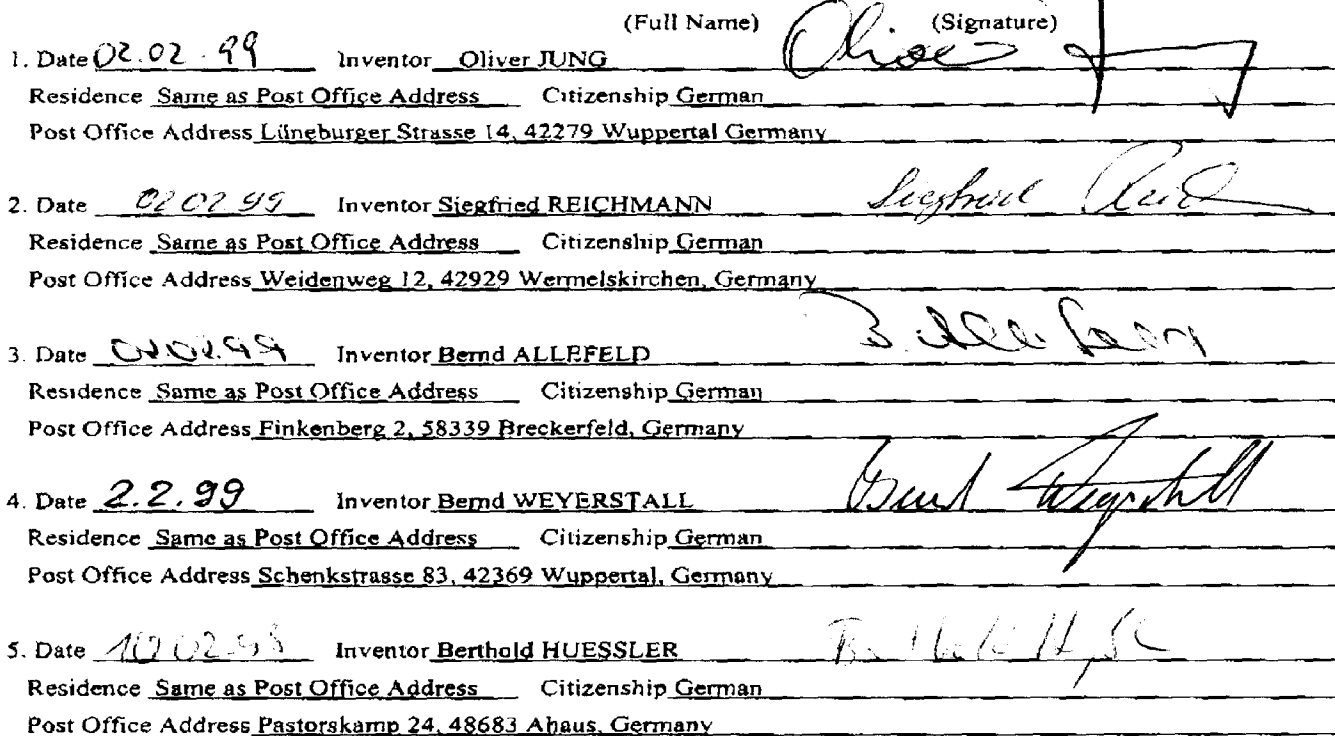 (Full Name) (Signature)
1. Date 02.02.99 Inventor Oliver JUNG Oliver Jung
Residence Same as Post Office Address Citizenship German
Post Office Address Lüneburger Strasse 14, 42279 Wuppertal Germany
2. Date 02 02 99 Inventor Siegfried REICHMANN Siegfried
Residence Same as Post Office Address Citizenship German
Post Office Address Weidenweg 12, 42929 Wermelskirchen, Germany
3. Date 02.02.99 Inventor Bernd ALLEFELD B. Allefeld
Residence Same as Post Office Address Citizenship German
Post Office Address Finkenberg 2, 58339 Breckerfeld, Germany
4. Date 2.2.99 Inventor Bernd WEYERSTALL Bernd Weyerstall
Residence Same as Post Office Address Citizenship German
Post Office Address Schenkstrasse 83, 42369 Wuppertal, Germany
5. Date Inventor Berthold HUESSLER
Residence Same as Post Office Address Citizenship German
Post Office Address Pastorskamp 24, 48683 Ahaus, Germany